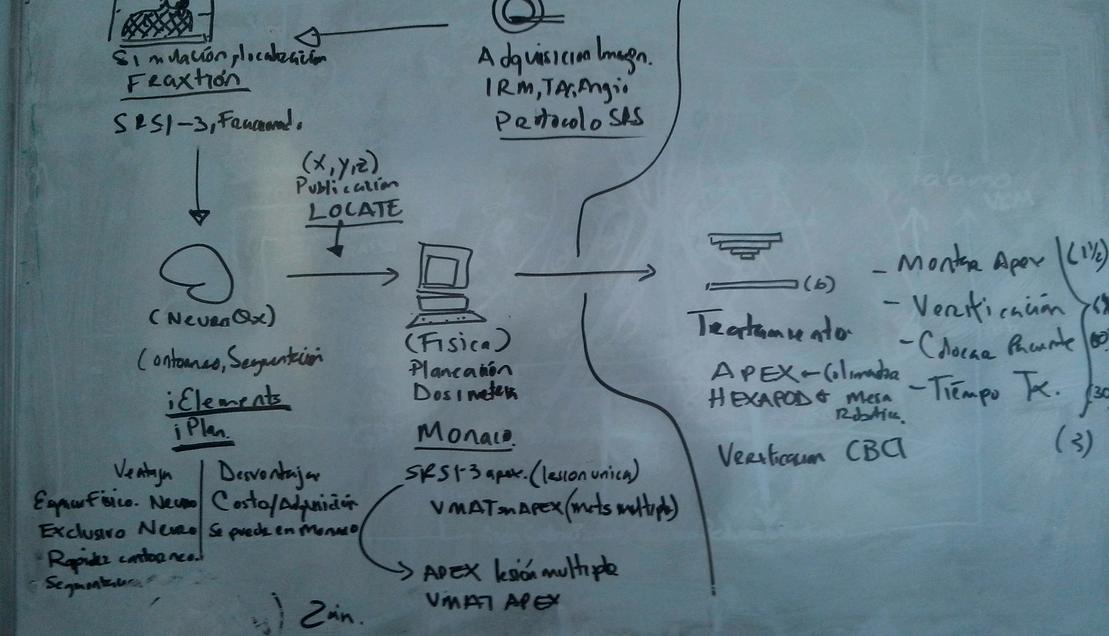 Simulación, localización
Fraxtion
SRS1-3, Fraccionad.
Adquisicion Imagn.
IRM, TAC, Angio
Protocolo SRS
(x, y, z)
Publicación
LOCATE
(NeuroQx)
Contorneo, Segmentación
iElements
iPlan.
Ventaja
Espacio Fisico. Neuro
Exclusivo Neuro
Rapidez contorneo.
Segmentación
Desventajas
Costo/Adquisición
Se puede en Monaco
(Física)
Planeación
Dosimetría
Monaco
SRS1-3 apex. (lesion unica)
VMAT sn APEX (mets multiple)
APEX lesión multiple
VMAT APEX
2 sin.
(6)
Tratamiento
APEX ← Colimador
HEXAPOD ← Mesa
Robotica.
Verificacion CBCT
- Montar Apex (1½)
- Verificación
- Colocar Paciente
- Tiempo Tx.
(3)